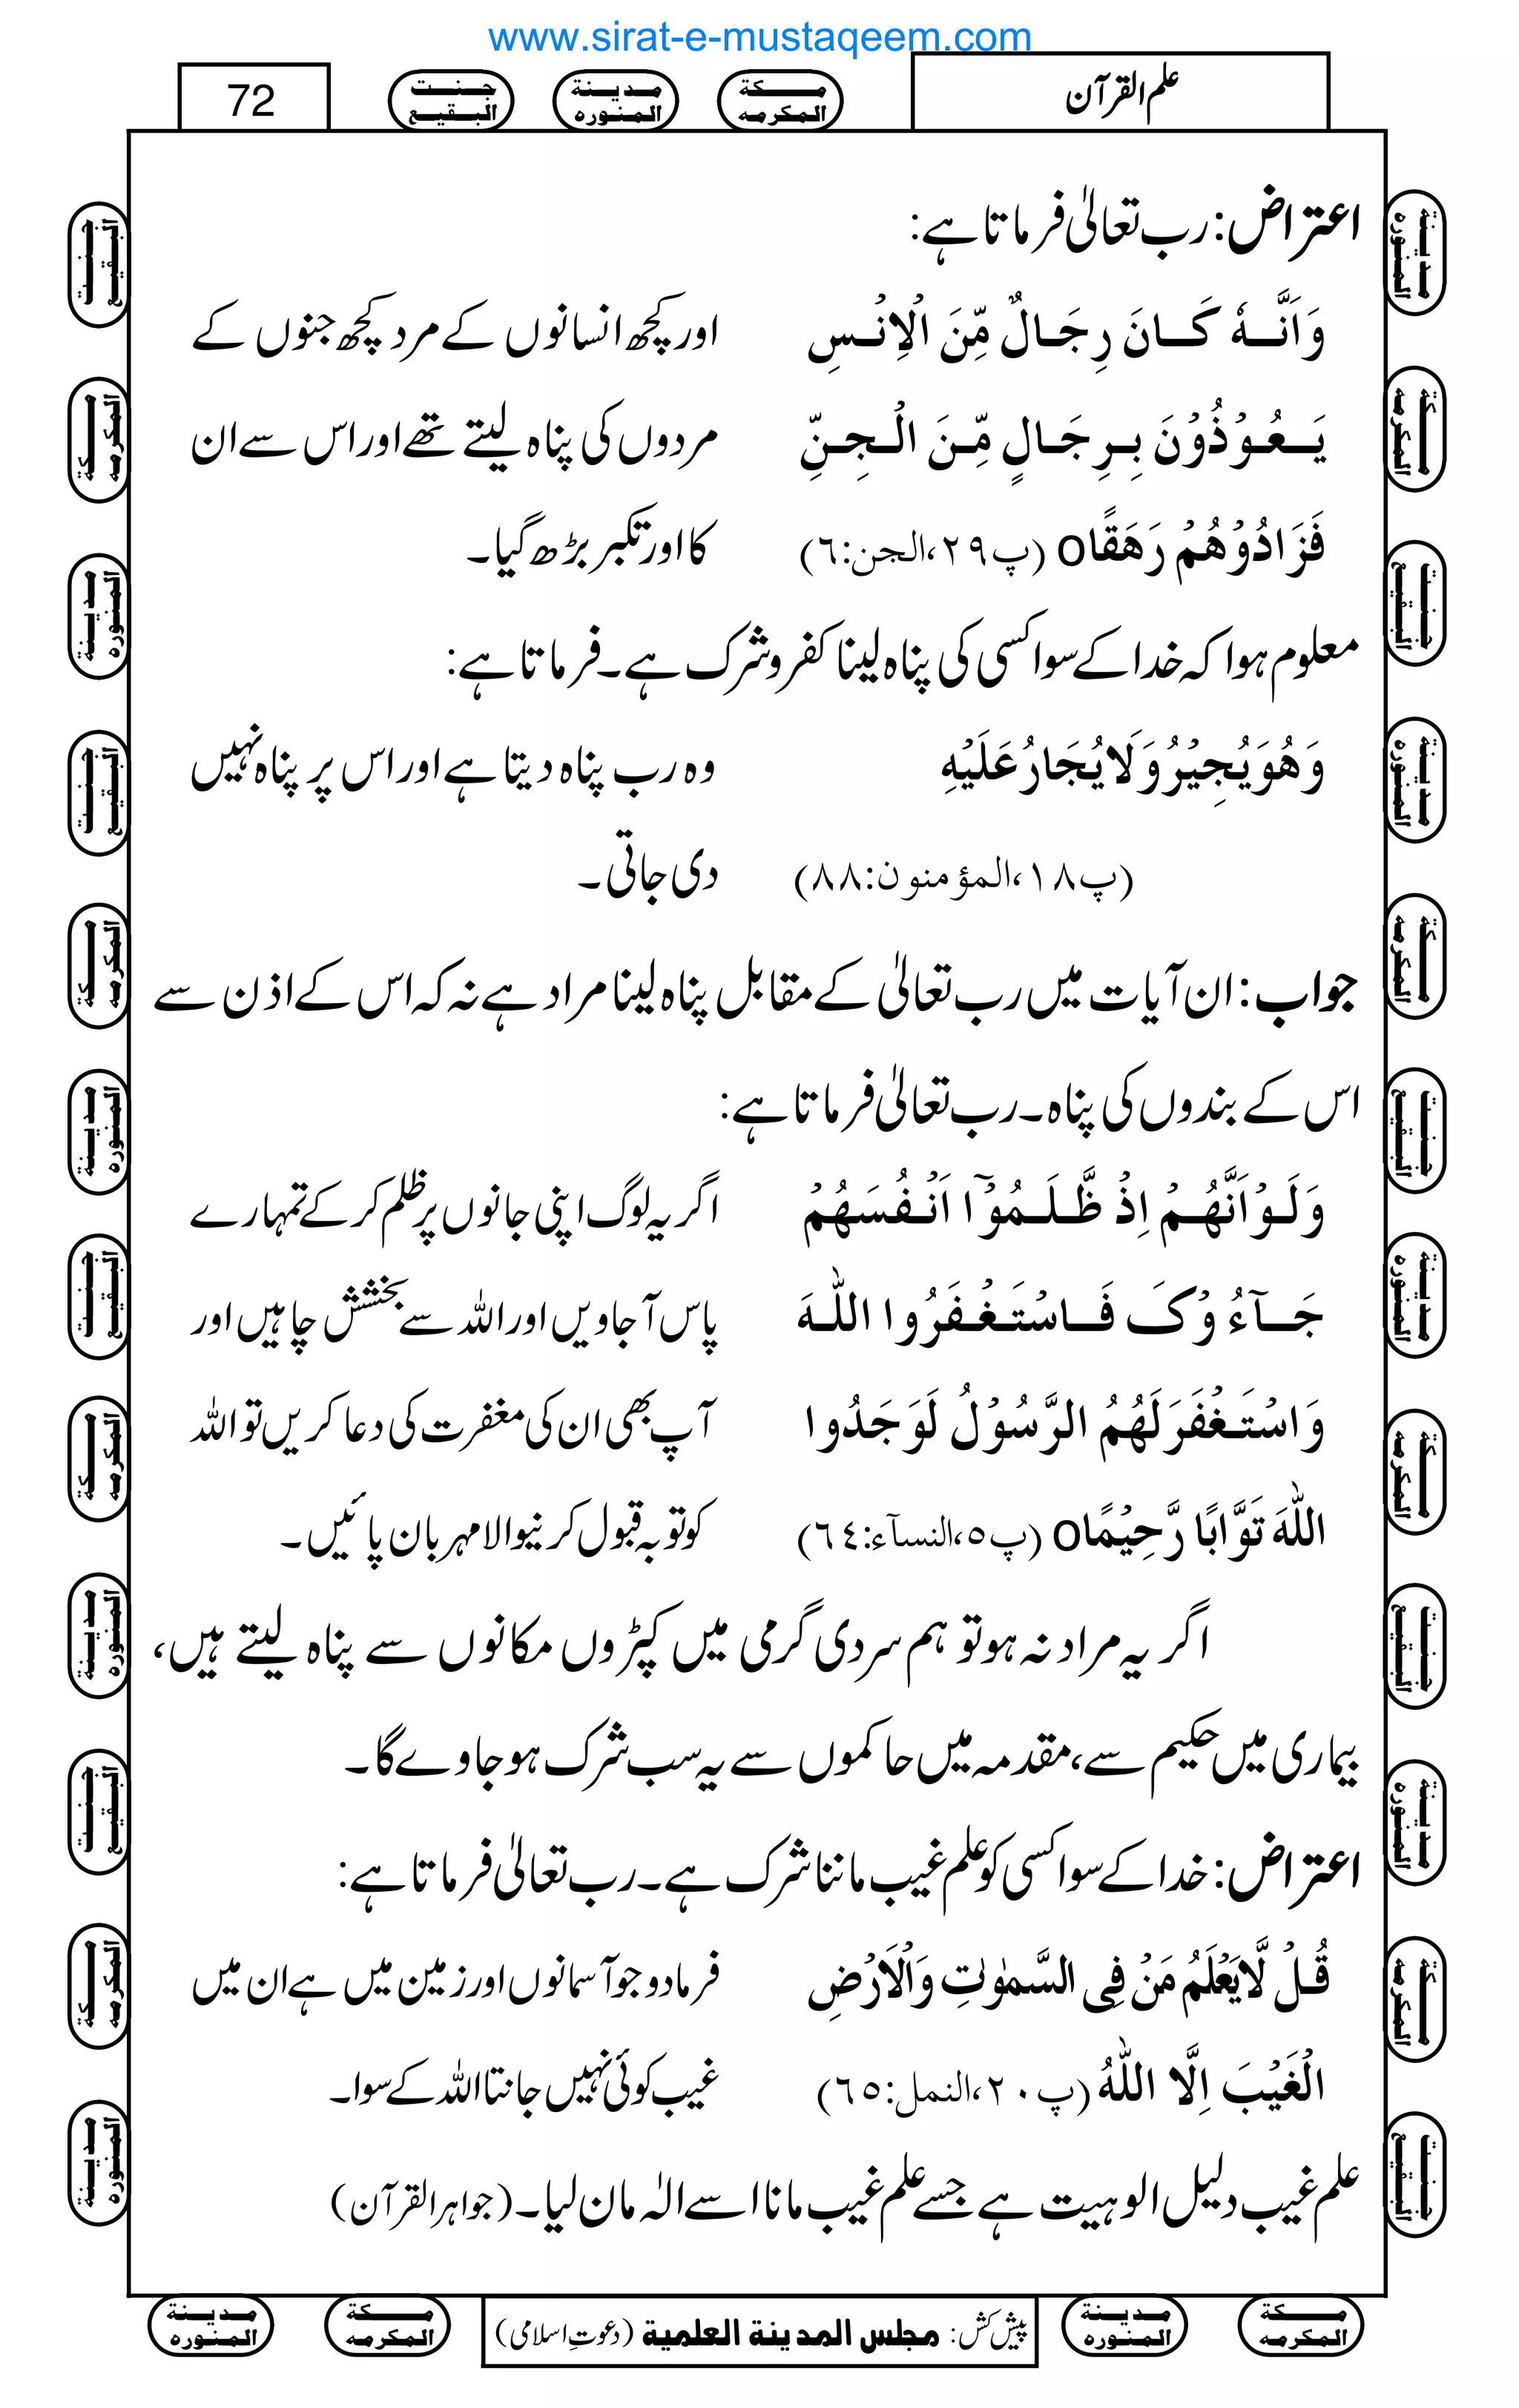 www.sirat-e-mustaqeem.com
علم القرآن
مکة المکرمه
مدینة المنوره
جنت البقیع
72
اعتراض: رب تعالیٰ فرماتا ہے:
وَاَنَّهٗ كَانَ رِجَالٌ مِّنَ الْاِنْسِ
اور کچھ انسانوں کے مرد کچھ جنوں کے
يَعُوْذُوْنَ بِرِجَالٍ مِّنَ الْجِنِّ
مردوں کی پناہ لیتے تھے اور اس سے ان
فَزَادُوْهُمْ رَهَقًاo (پ٢٩،الجن:٦)
کا اور تکبر بڑھ گیا۔
معلوم ہوا کہ خدا کے سوا کسی کی پناہ لینا کفر و شرک ہے۔ فرماتا ہے:
وَهُوَ يُجِيْرُ وَلَا يُجَارُ عَلَيْهِ
وہ رب پناہ دیتا ہے اور اس پر پناہ نہیں
(پ١٨،المؤمنون:٨٨)
دی جاتی۔
جواب: ان آیات میں رب تعالیٰ کے مقابل پناہ لینا مراد ہے نہ کہ اس کے اذن سے
اس کے بندوں کی پناہ۔ رب تعالیٰ فرماتا ہے:
وَلَوْ اَنَّهُمْ اِذْ ظَّلَمُوْٓا اَنْفُسَهُمْ
اگر یہ لوگ اپنی جانوں پر ظلم کر کے تمہارے
جَآءُوْكَ فَاسْتَغْفَرُوا اللّٰهَ
پاس آجاویں اور اللہ سے بخشش چاہیں اور
وَاسْتَغْفَرَ لَهُمُ الرَّسُوْلُ لَوَجَدُوا
آپ بھی ان کی مغفرت کی دعا کریں تو اللہ
اللّٰهَ تَوَّابًا رَّحِيْمًاo (پ٥،النسآء:٦٤)
کو توبہ قبول کرنیوالا مہربان پائیں۔
اگر یہ مراد نہ ہو تو ہم سردی گرمی میں کپڑوں مکانوں سے پناہ لیتے ہیں،
بیماری میں حکیم سے، مقدمہ میں حاکموں سے یہ سب شرک ہوجاوے گا۔
اعتراض: خدا کے سوا کسی کو علم غیب ماننا شرک ہے۔ رب تعالیٰ فرماتا ہے:
قُلْ لَّا يَعْلَمُ مَنْ فِى السَّمٰوٰتِ وَالْاَرْضِ
فرمادو جو آسمانوں اور زمین میں ہے ان میں
الْغَيْبَ اِلَّا اللّٰهُ (پ٢٠،النمل:٦٥)
غیب کوئی نہیں جانتا اللہ کے سوا۔
علم غیب دلیل الوہیت ہے جسے علم غیب مانا اسے الٰہ مان لیا۔ (جواہر القرآن)
مکة المکرمه
مدینة المنوره
پیش کش: مجلس المدينة العلمية (دعوتِ اسلامی)
مکة المکرمه
مدینة المنوره